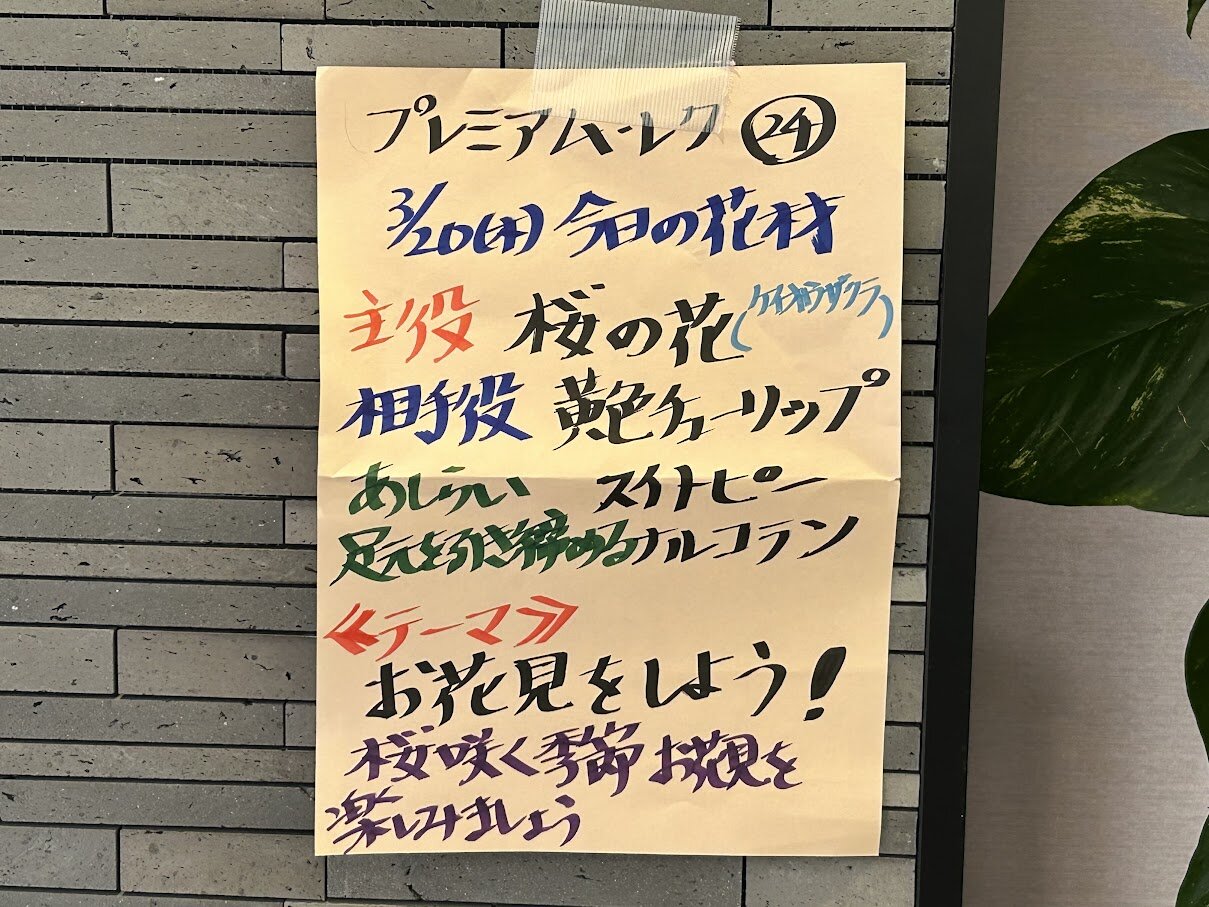 プレミアム・レク ㉔
3/20(木) 今日の花材
主役 桜の花(ケイオウザクラ)
相手役 黄色チューリップ
あしらい スイトピー
足元を引き締める ナルコラン
≪テーマ≫
お花見をしよう!
桜咲く季節 お花見を
楽しみましょう